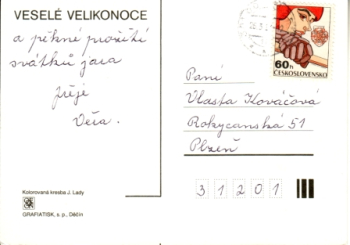 VESELÉ VELIKONOCE
a pěkné prožití
svátků jara
přeje
Věra.
Kolorovaná kresba J. Lady
GRAFIATISK, s. p., Děčín
60h
ČESKOSLOVENSKO
Paní
Vlasta Kováčová
Rokycanská 51
Plzeň
31201